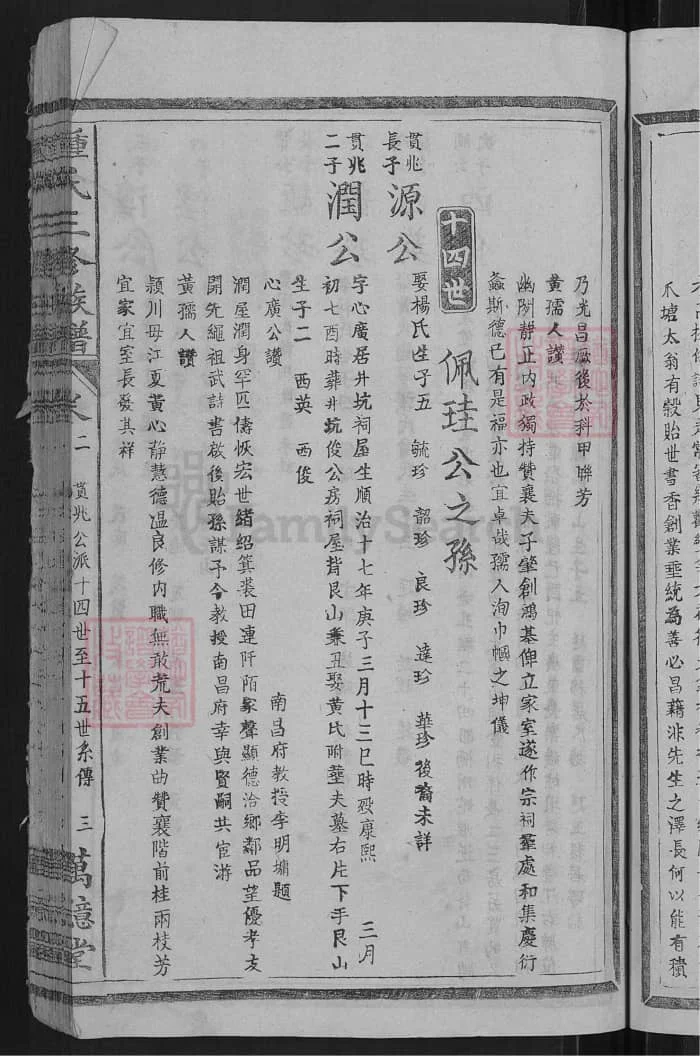 乃光昌厥後於科甲聨芳
黄孺人讃
幽閒靜正内政獨持贊襄夫子肇創鴻基俾立家室遂作宗祠羣處和集慶衍
螽斯德已有是福亦也宜卓哉孺人洵巾幗之坤儀
十四世
佩珪公之孫
貫兆長子 源公 娶楊氏生子五 毓珍 韶珍 良珍 達珍 華珍後裔未詳
貫兆二子 潤公 字心廣居井坑祠屋生順治十七年庚子三月十三巳時歿康熙 三月
初七酉時葬井坑俊公房祠屋背艮山兼丑娶黄氏附塟夫墓右片下手艮山
生子二 西英 西俊
心廣公讃 南昌府教授李明墉題
潤屋潤身罕匹儔恢宏世緒紹箕裘田連阡陌家聲顯德洽鄉鄰品望優孝友
開先繩祖武詩書啟後貽孫謀予今教授南昌府幸與賢嗣共宦游
黄孺人讃
潁川毋江夏黄心靜慧德温良修内職無敢荒夫創業曲贊襄階前桂兩枝芳
宜家宜室長發其祥
鍾氏三修族譜 卷二 貫兆公派十四世至十五世系傳 三 萬億堂
爪塘太翁有榖貽世書香創業垂統為善必昌藉非先生之澤長何以能有積